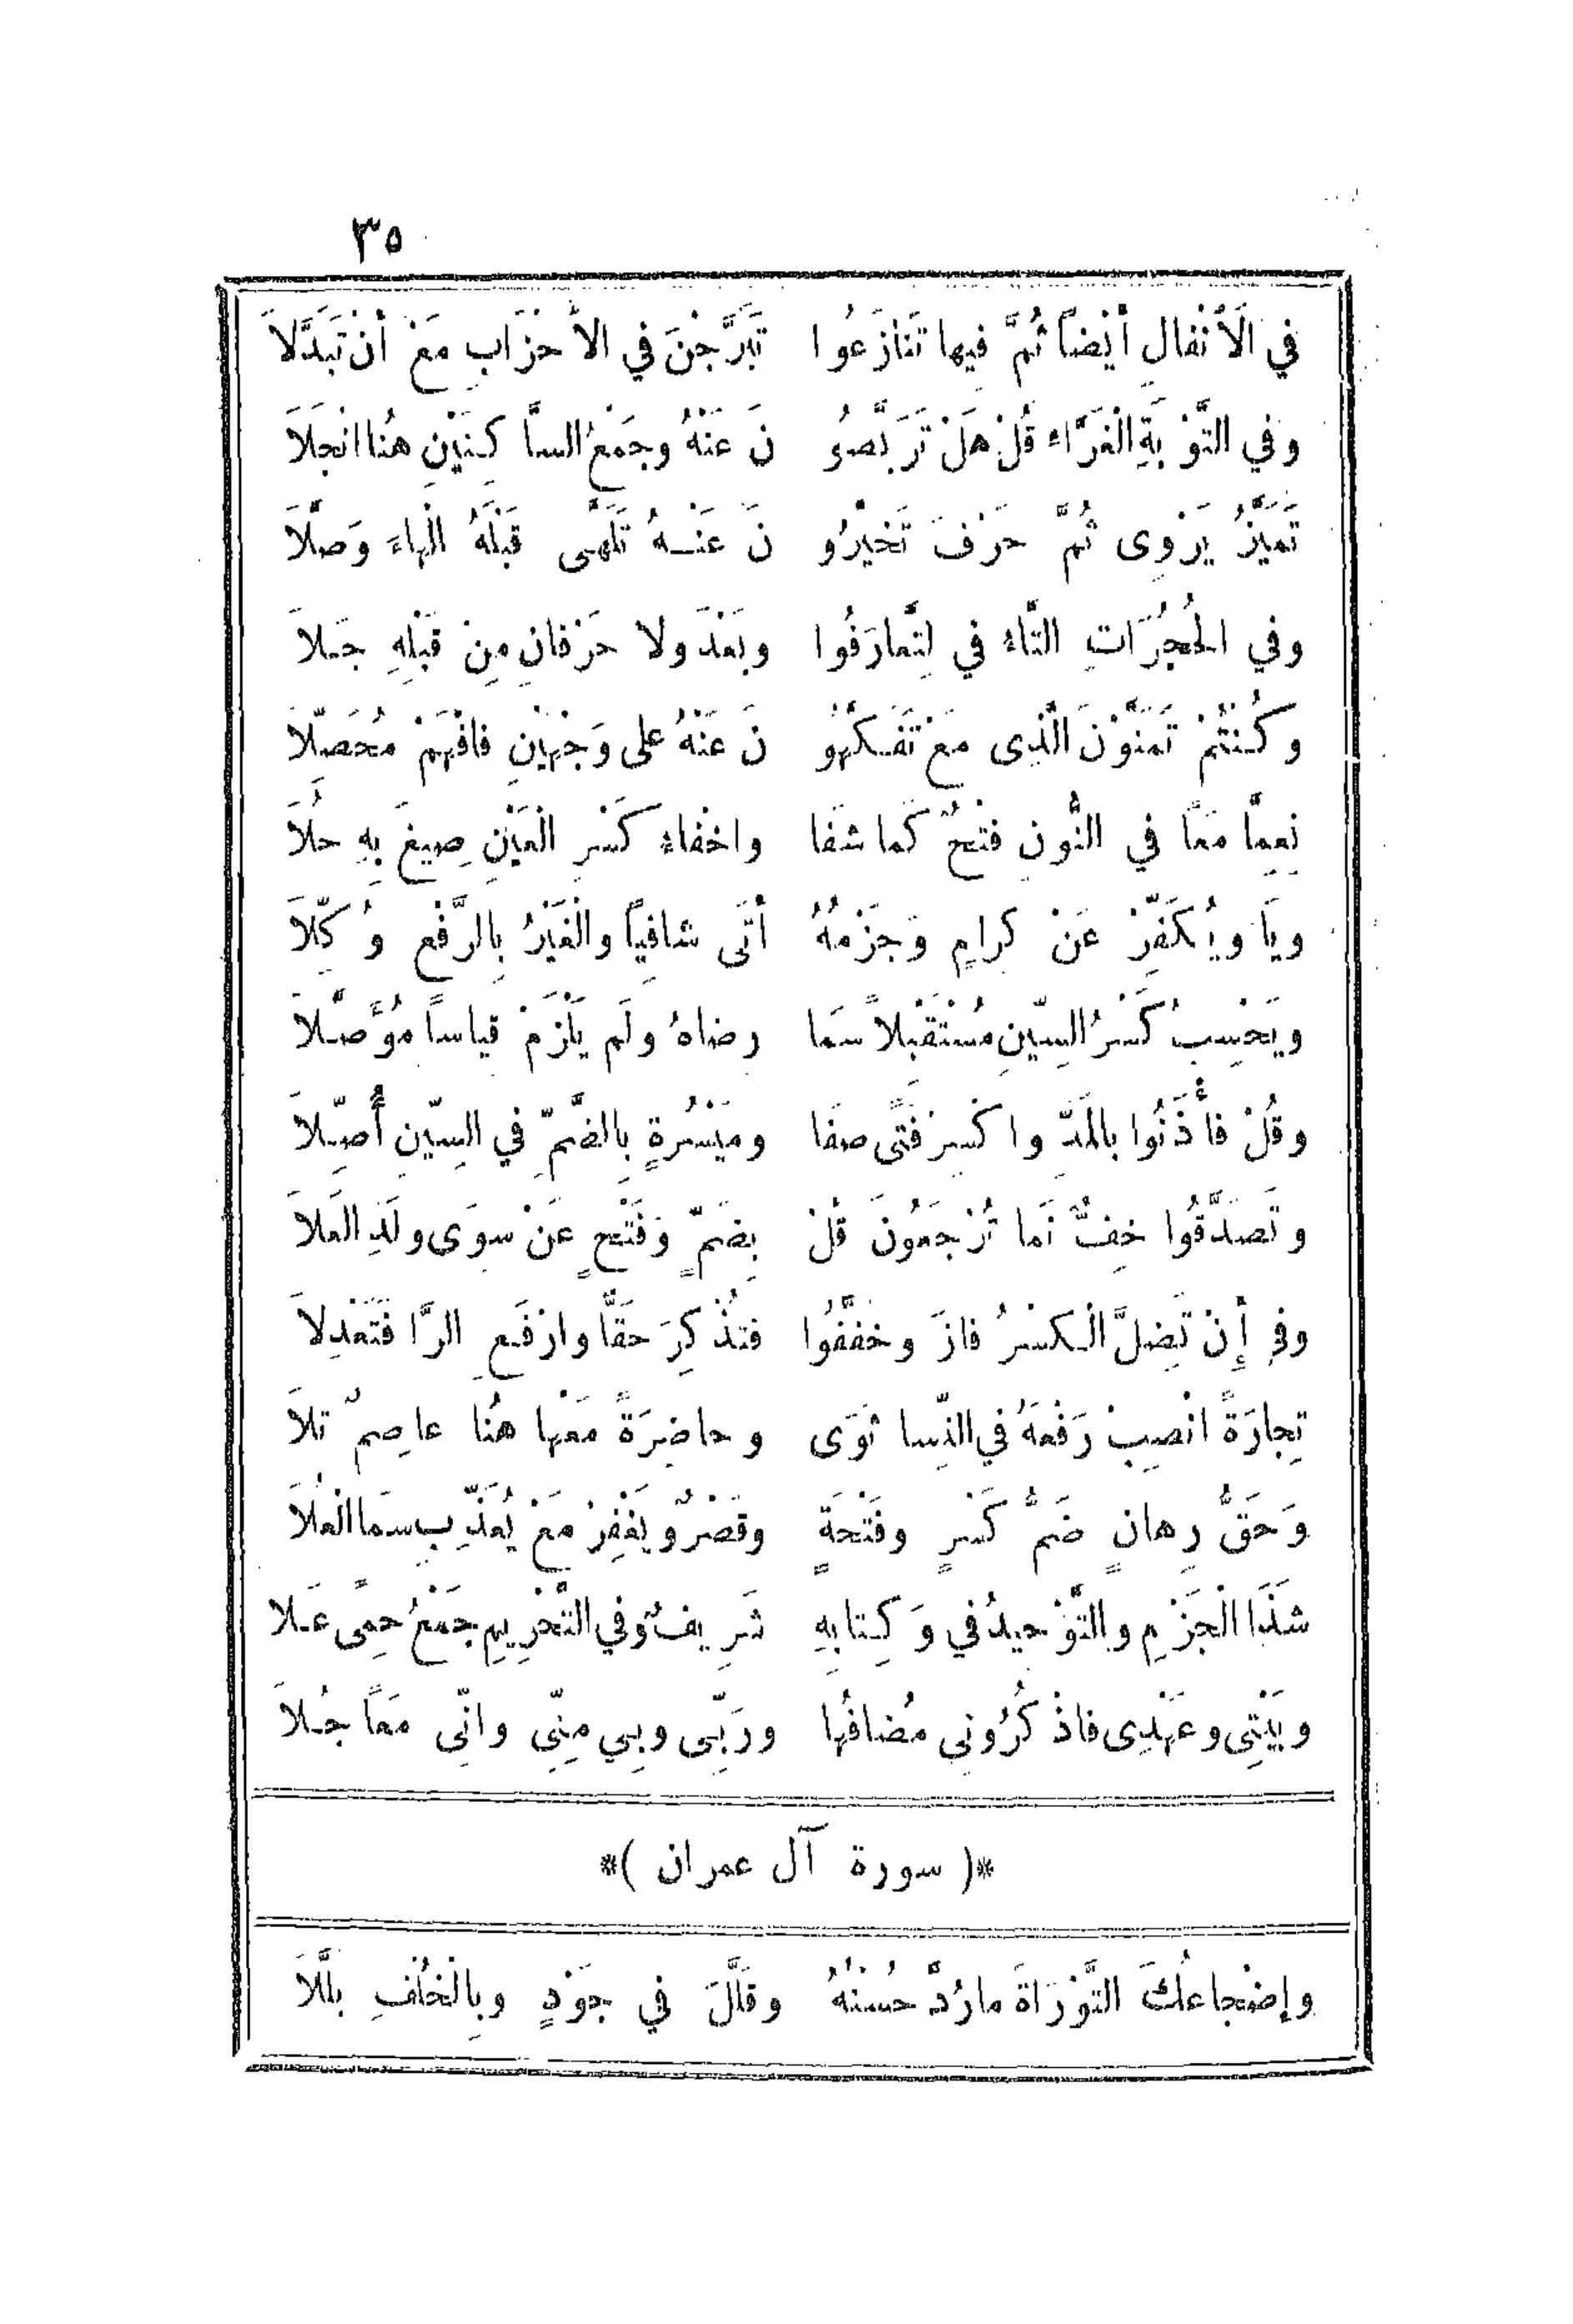 ٣٥
في الَأنْفالِ أيْضاً ثُمَّ فِيها تَنَازَعُوا تَبَرَّجْنَ في الاَحْزَابِ مَعْ أنْ تَبَدَّلاَ
وفي التَّوْبَةِ الْغَرَّاءِ قُلْ هَلْ تَرَبَّصُو نَ عَنْهُ وجَمْعُ السَّاكِنَيْنِ هُنا انْجَلاَ
تَمَيَّزُ يَرْوِى ثُمَّ حَرْفَ تَخَيَّرُو نَ عَنْـهُ تَلَهَّى قَبْلَهُ الْهاءَ وَصَّلاَ
وفي الحُجُرَاتِ التَّاءُ في لِتَعارَفُوا وبَعْدَ ولا حَرْفانِ مِنْ قَبْلِهِ جَـلاَ
وكُنْتُمْ تَمَنَّوْنَ الَّذِى مَعْ تَفَـكَّهُو نَ عَنْهُ على وَجْهَيْنِ فافْهَمْ مُحَصِّلاَ
نِعِمَّا مَعاً في النُّونِ فَتْحٌ كَما شَفَا وإخْفاءُ كَسْرِ الْعَيْنِ صِيغَ بِهِ حُلاَ
ويَا ويُكَفِّرْ عَنْ كِرامٍ وَجَزْمُهُ أتَى شافِياً والْغَيْرُ بِالرَّفْعِ وُكِّلاَ
ويَحْسِبُ كَسْرُ السِّينِ مُسْتَقْبَلاً سَمَا رِضاهُ ولَم يَلْزَمْ قِياساً مُؤَصَّـلاَ
وقُلْ فأْذَنُوا بالمَدِّ واكْسِرْ فَتًى صَفَا ومَيْسُرَةٍ بِالضَّمِّ في السِّينِ أُصِّـلاَ
وتَصَدَّقُوا خِفٌّ نَما تُرْجَعُونَ قُلْ بِضَمٍّ وَفَتْحٍ عَنْ سِوَى ولَدِ العَلاَ
وفي إِنْ تَضِلَّ الْـكَسْرُ فازَ وخَفَّفُوا فتُذْكِرَ حَقًّا وارْفَـعِ الرَّا فَتَعْدِلاَ
تِجارَةً انْصِبْ رَفْعَهُ في النِّسا ثَوَى وحاضِرَةً مَعْها هُنا عاصِمٌ تلاَ
وَحَقُّ رِهانٍ ضَمُّ كَسْرٍ وفَتْحَةٍ وقَصْرٌ ويَغْفِرْ مَعْ يُعَذِّبِ سَمَا الْعُلاَ
شَذَا الْجَزْمِ والتَّوْحِيدُ في وَكِتابِهِ شَرِيفٌ وفي التَّحْرِيمِ جَمْعُ حِمًى عَـلا
وبَيْتِى وعَهْدِى فاذْكُرُونِى مُضافُها ورَبِّى وبِي مِنِّى وإنِّى مَعاً حُـلاَ
*( سورة آل عمران )*
وإضْجاعُكَ التَّوْرَاةَ مارُدَّ حُسْنُهُ وقَلَّلَ في جَوْدٍ وبِالْخُلْفِ بلَّلاَ